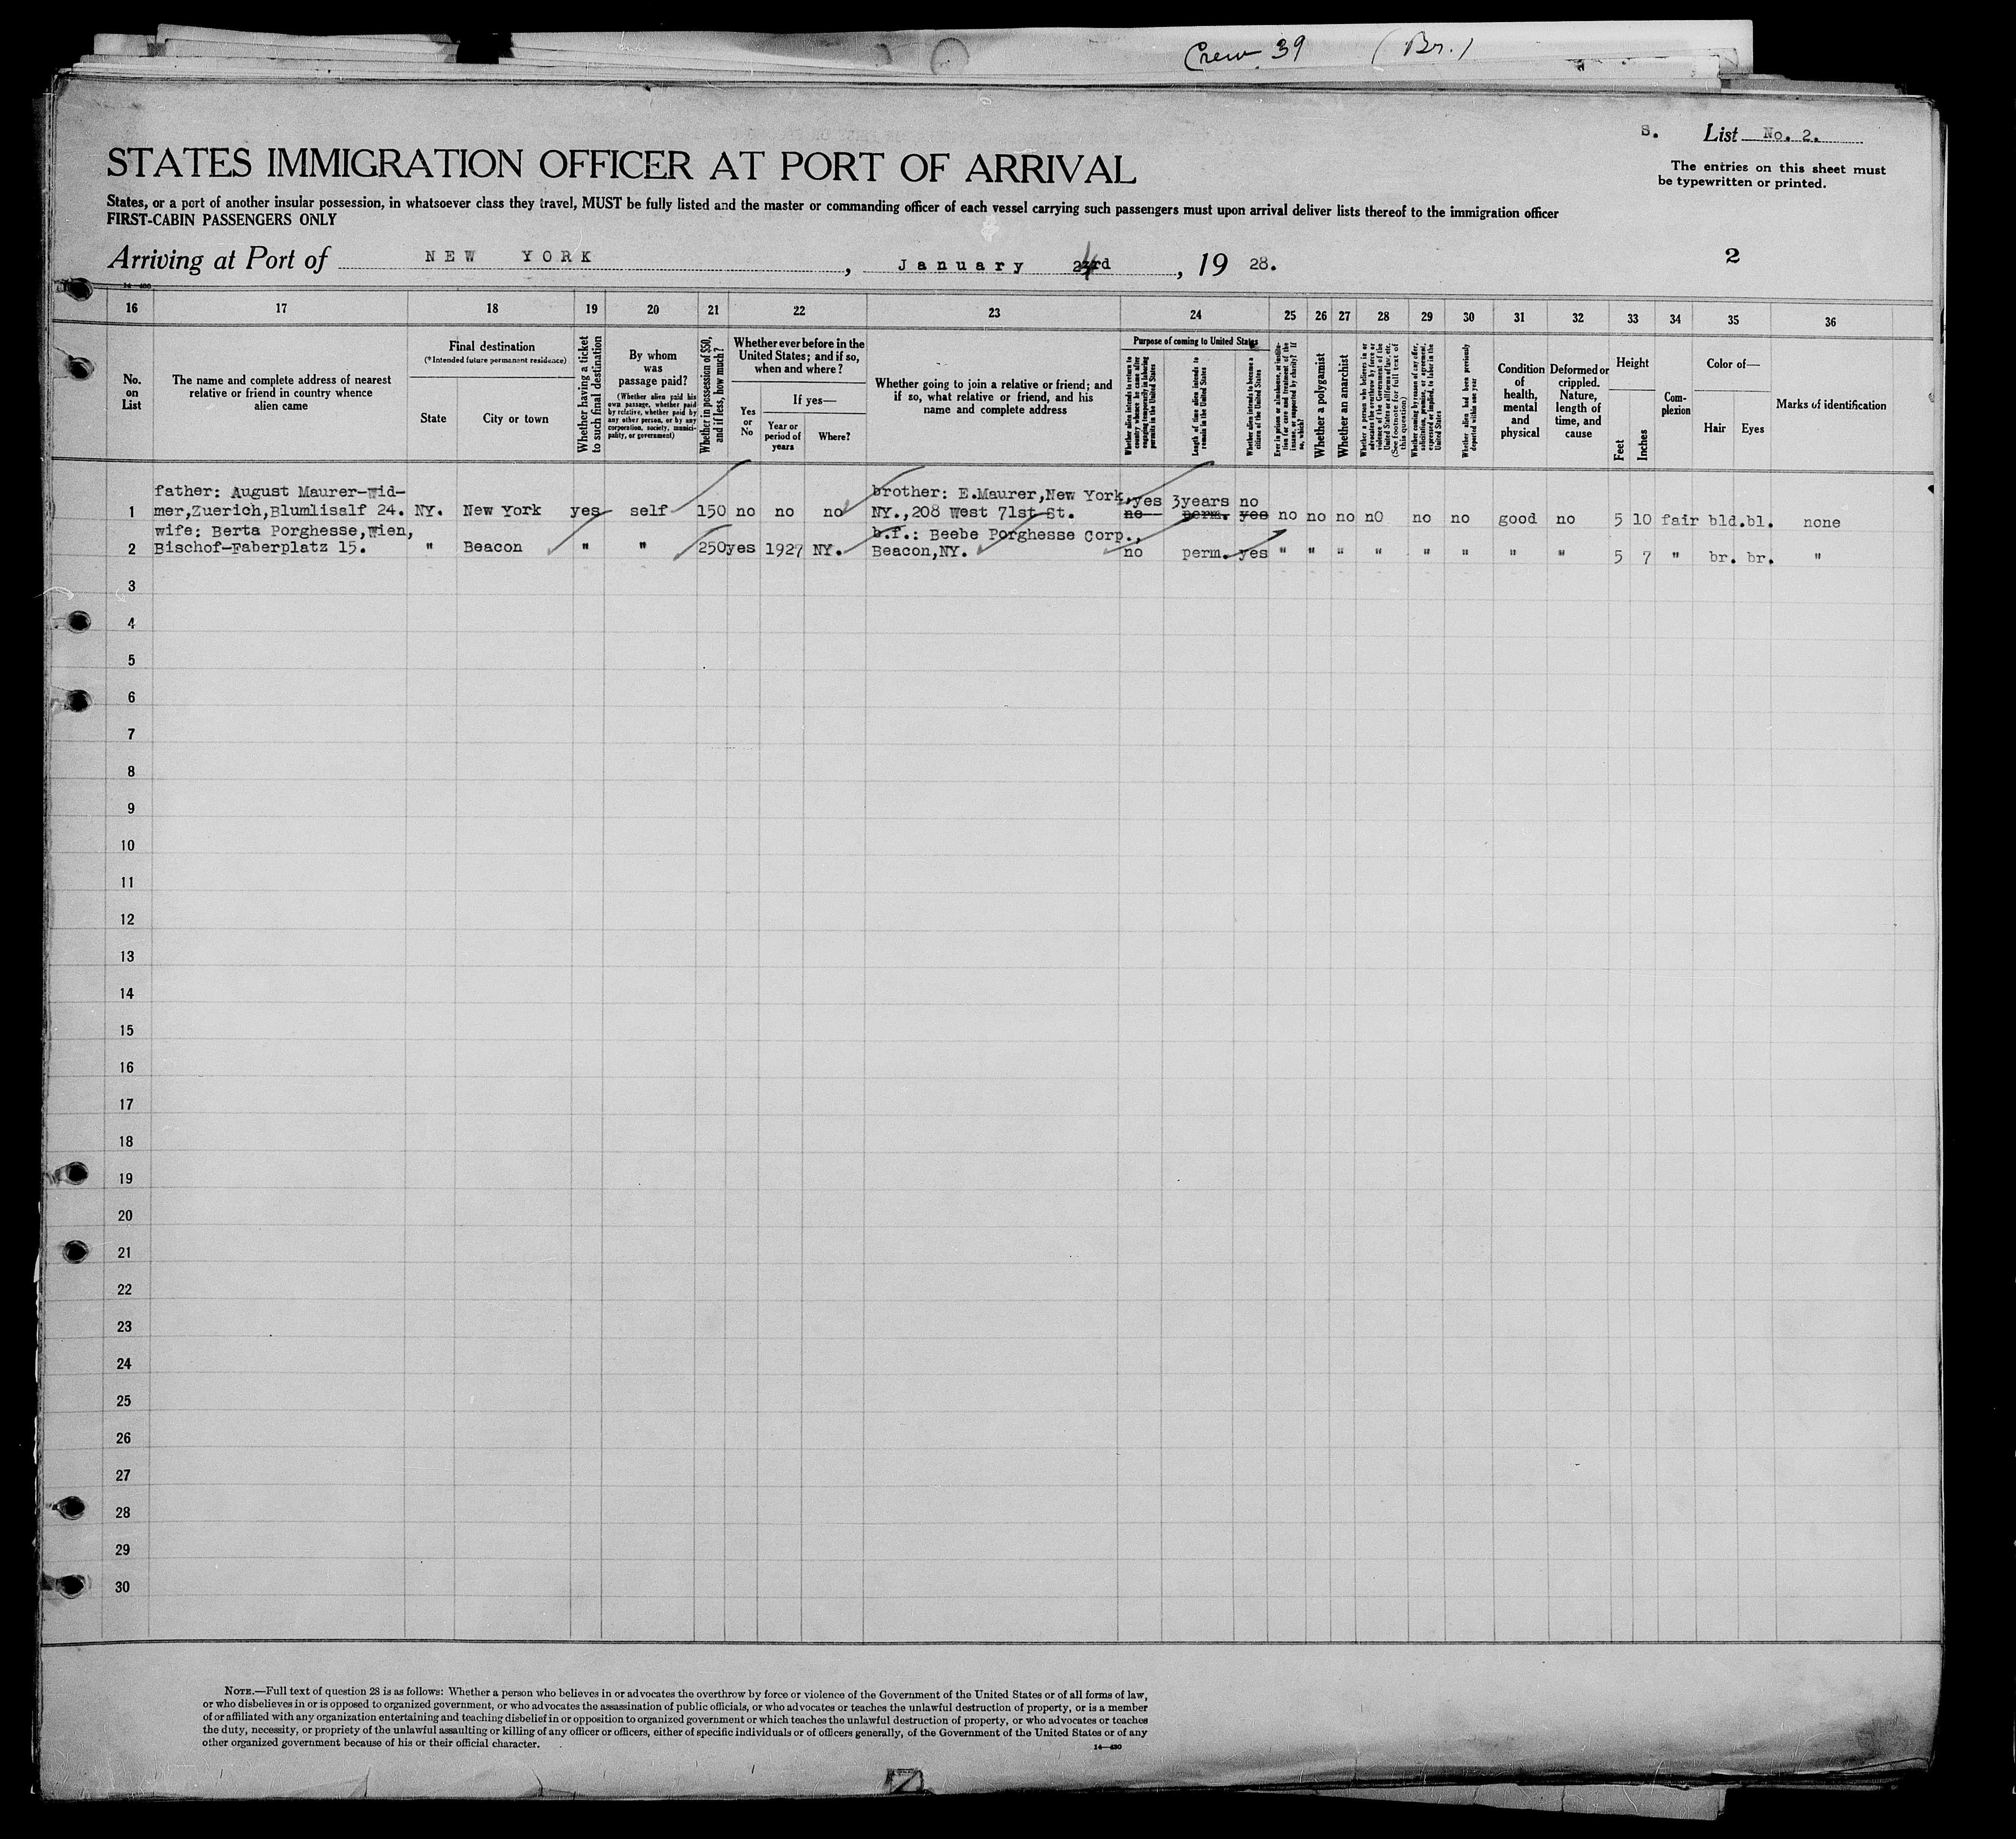 Crew. 39 (Br.)
S. List No. 2.
STATES IMMIGRATION OFFICER AT PORT OF ARRIVAL
The entries on this sheet must
be typewritten or printed.
States, or a port of another insular possession, in whatsoever class they travel, MUST be fully listed and the master or commanding officer of each vessel carrying such passengers must upon arrival deliver lists thereof to the immigration officer
FIRST-CABIN PASSENGERS ONLY
Arriving at Port of NEW YORK, January 4rd, 1928.
2
14—430
16 17 18 19 20 21 22 23 24 25 26 27 28 29 30 31 32 33 34 35 36
No. on List
The name and complete address of nearest
relative or friend in country whence
alien came
Final destination
(*Intended future permanent residence)
State
City or town
Whether having a ticket
to such final destination
By whom
was
passage paid?
(Whether alien paid his
own passage, whether paid
by relative, whether paid by
any other person, or by any
corporation, society, munici-
pality, or government)
Whether in possession of $50,
and if less, how much?
Whether ever before in the
United States; and if so,
when and where?
Yes
or
No
If yes—
Year or
period of
years
Where?
Whether going to join a relative or friend; and
if so, what relative or friend, and his
name and complete address
Purpose of coming to United States
Whether alien intends to return to
country whence he came after
engaging temporarily in laboring
pursuits in the United States
Length of time alien intends to
remain in the United States
Whether alien intends to become a
citizen of the United States
Ever in prison or almshouse, or institu-
tion for care and treatment of the
insane, or supported by charity? If
so, which?
Whether a polygamist
Whether an anarchist
Whether a person who believes in or
advocates the overthrow by force or
violence of the Government of the
United States or all forms of law, etc.
(See footnote for full text of
this question)
Whether coming by reason of any offer,
solicitation, promise, or agreement,
expressed or implied, to labor in the
United States
Whether alien had been previously
deported within one year
Condition
of
health,
mental
and
physical
Deformed or
crippled.
Nature,
length of
time, and
cause
Height
Feet
Inches
Com-
plexion
Color of—
Hair
Eyes
Marks of identification
father: August Maurer-Wid- brother: E.Maurer,New York, yes 3years no
1 mer,Zuerich,Blumlisalf 24. NY. New York yes self 150 no no no NY.,208 West 71st St. no perm. yes no no no nO no no good no 5 10 fair bld. bl. none
wife: Berta Porghesse,Wien, b.f.: Beebe Porghesse Corp.,
2 Bischof-Faberplatz 15. " Beacon " " 250 yes 1927 NY. Beacon,NY. no perm. yes " " " " " " " " 5 7 " br. br. "
3
4
5
6
7
8
9
10
11
12
13
14
15
16
17
18
19
20
21
22
23
24
25
26
27
28
29
30
NOTE.—Full text of question 28 is as follows: Whether a person who believes in or advocates the overthrow by force or violence of the Government of the United States or of all forms of law,
or who disbelieves in or is opposed to organized government, or who advocates the assassination of public officials, or who advocates or teaches the unlawful destruction of property, or is a member
of or affiliated with any organization entertaining and teaching disbelief in or opposition to organized government or which teaches the unlawful destruction of property, or who advocates or teaches
the duty, necessity, or propriety of the unlawful assaulting or killing of any officer or officers, either of specific individuals or of officers generally, of the Government of the United States or of any
other organized government because of his or their official character.
14—430